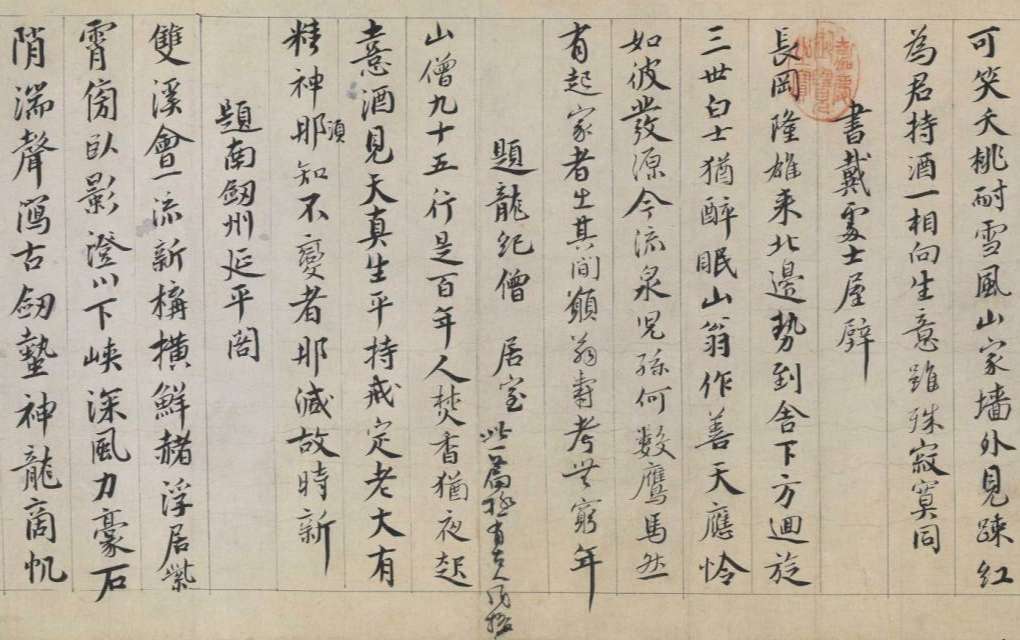 可笑夭桃耐雪風山家墻外見踈紅
為君持酒一相向生意雖殊寂寞同
嘉慶御覽之寶
書戴處士屋壁
長岡隆雄來北邊勢到舍下方迴旋
三世白士猶醉眠山翁作善天應怜
如彼發源今流泉兒孫何數鷹馬然
有起家者出其間願翁壽考無窮年
題龍紀僧居室 此一篇極有古人風格
山僧九十五行是百年人焚香猶夜起
憙酒見天真生平持戒定老大有
精神耶須知不變者耶減故時新
題南劒州延平閣
雙溪會一流新構橫鮮赭浮居紫
霄傍臥影澄川下峽深風力豪石
陗湍聲瀉古劒蟄神龍商帆